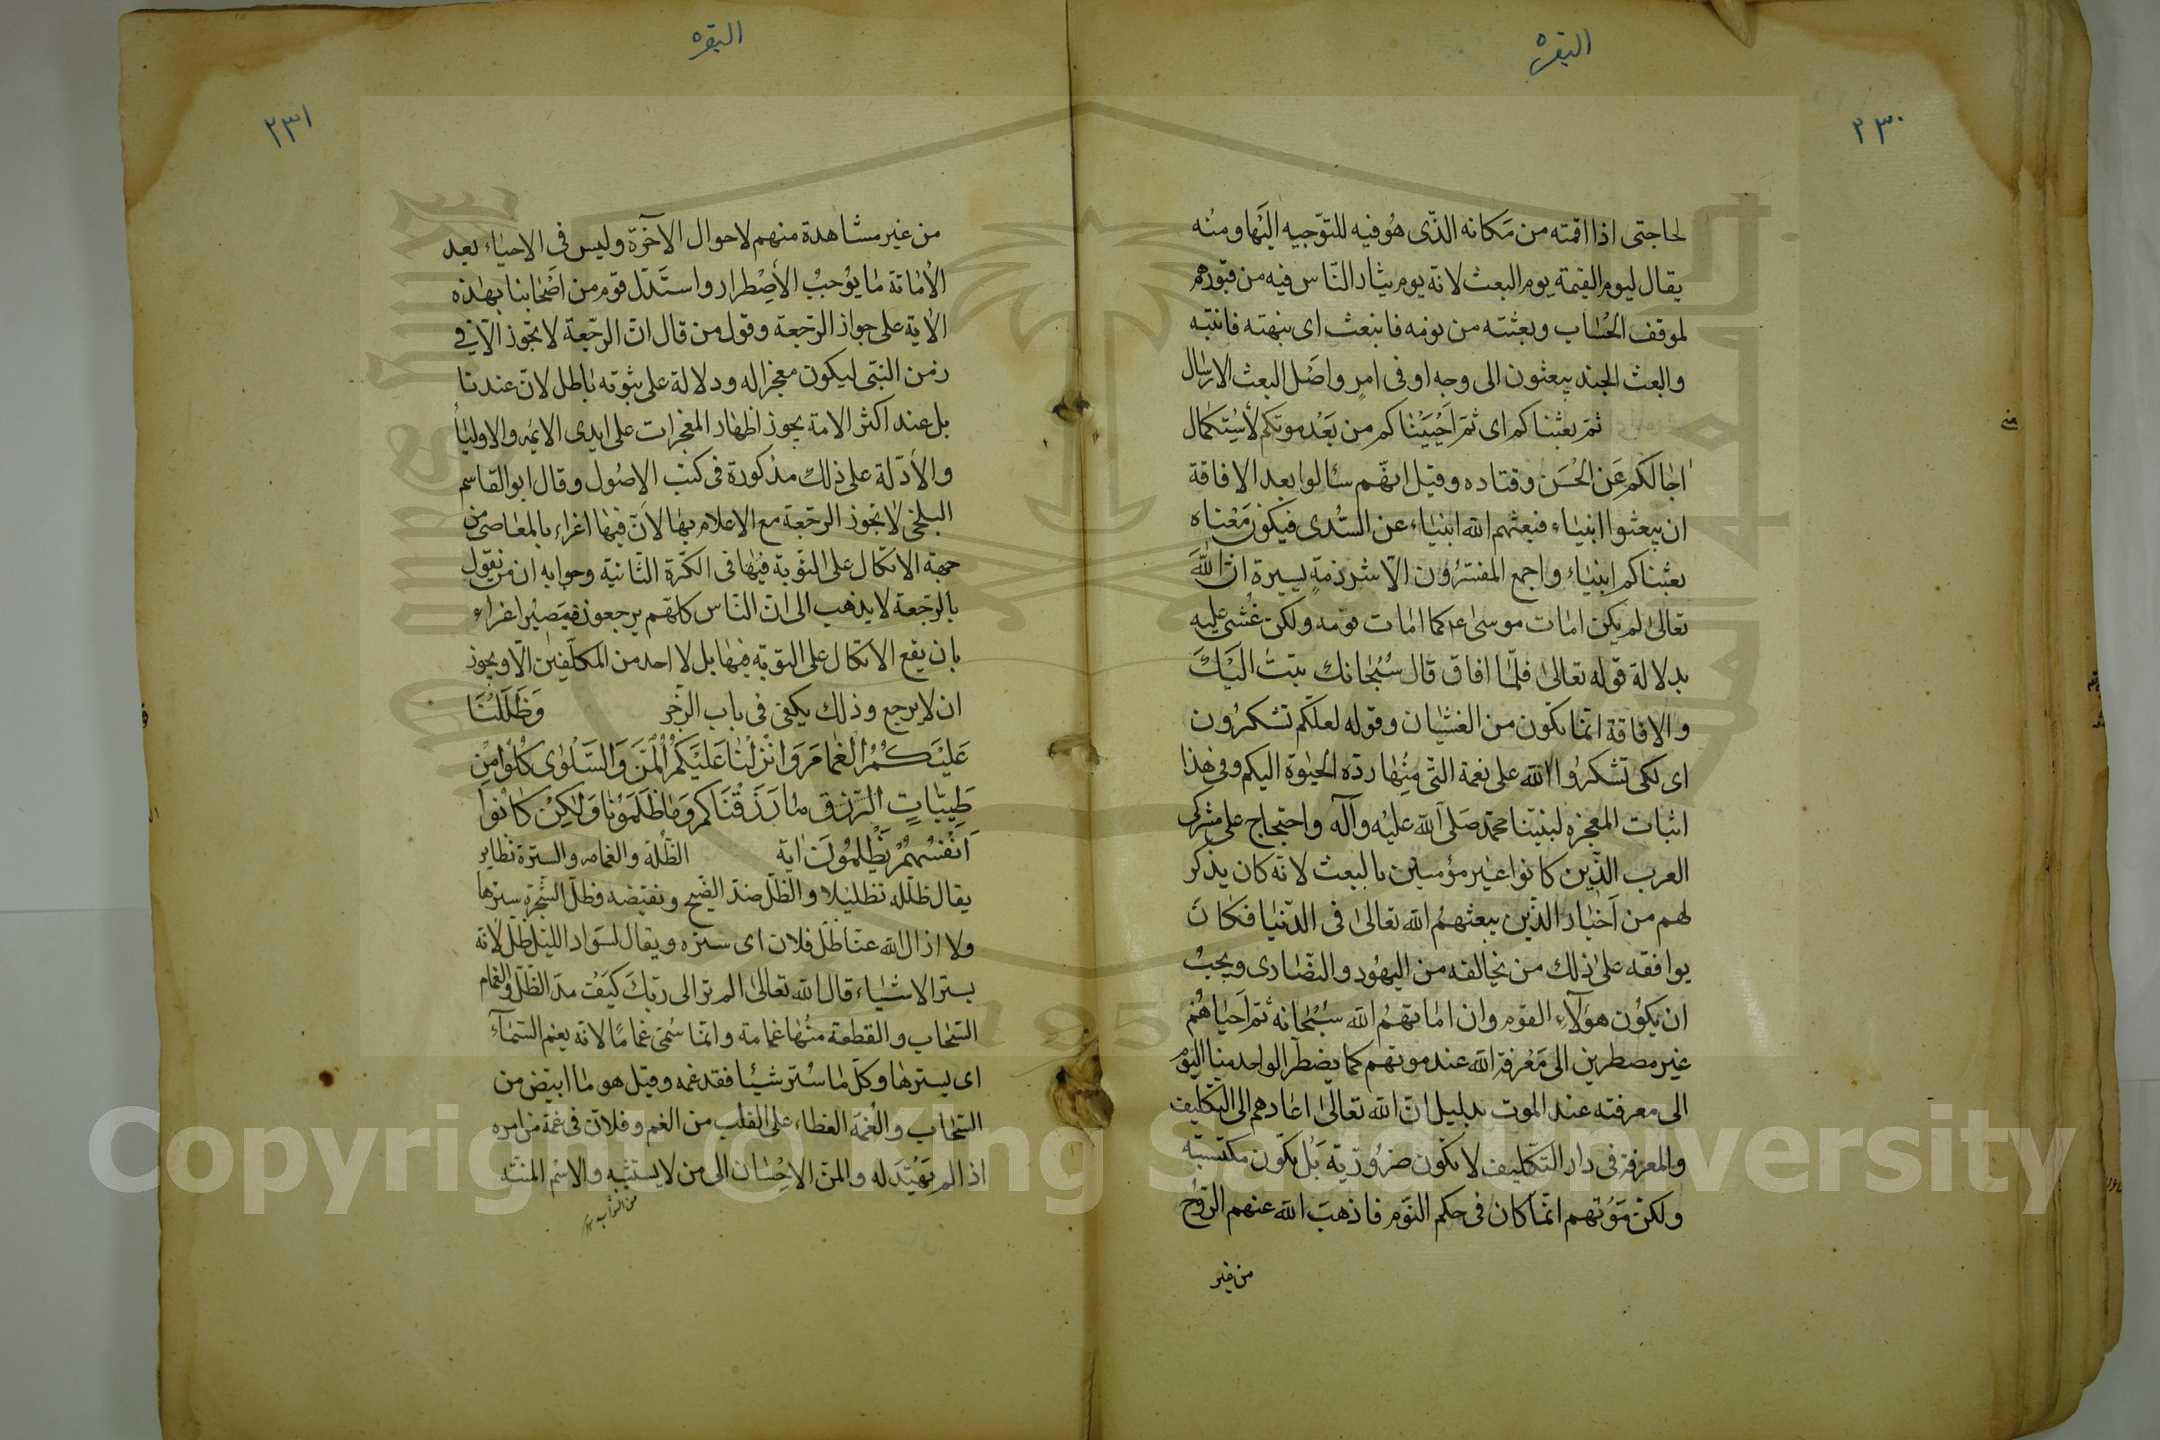 البقره
٢٣٠
لحاجتى اذا اقمته من مكانه الذّى هو فيه للتوّجيه اليها ومنه
يقال ليوم القيمة يوم البعث لانه يوم يثار النّاس فيه من قبورهم
لموقف الحساب وبعثته من نومه فانبعث اى نبهته فانتبه
والبعث الجند يبعثون الى وجه او فى امر واصل البعث الارسال
ثمّ بعثناكم اى ثمّ احييناكم من بعد موتكم لاستكمال
اجالكم عن الحسن وقتاده وقيل انهّم سالوا بعد الافاقة
ان يبعثوا انبياء فبعثهم الله انبياء عن السّدى فيكون معناه
بعثناكم انبياء واجمع المفسرون الاّ شرذمةٍ يسيرة انّ الله
تعالى لم يكن امات موسى ع كما امات قومه ولكن غشى عليه
بدلالة قوله تعالى فلمّا افاق قال سبحانك تبت اليك
والافاقة انّما تكون من الغشيان وقوله لعلّكم تشكرون
اى لكى تشكروا الله على نعمة التّى منها ردّه الحيوة اليكم وفى هذا
اثبات المعجزه لنبيّنا محمّد صلى الله عليه وآله واحتجاج على مشركى
العرب الذّين كانوا غير مؤمنين بالبعث لانّه كان يذكر
لهم من اخبار الذّين بعثهم الله تعالى فى الدّنيا فكان
يوافقه على ذلك من يخالفه من اليهود والنصّارى ويجب
ان يكون هؤلآء القوم وان اماتهم الله سبحانه ثمّ احياهم
غير مضطرين الى معرفة الله عند موتهم كما يضطّر الواحد منا اليوم
الى معرفته عند الموت بدليل انّ الله تعالى اعادهم الى التكليف
والمعرفة فى دار التكّليف لا تكون ضرورية بل تكون مكتسبة
ولكن موتهم انّما كان فى حكم النّوم فاذهب الله عنهم الرّوح
من غير
البقره
٢٣١
من غير مشاهدة منهم لاحوال الآخرة وليس فى الاحياء بعد
الاماتة ما يوجب الاضطرار واستدّل قوم من اصحابنا بهذه
الاية على جواز الرّجعة وقول من قال انّ الرجّعة لا تجوز الاّ فى
زمن النبّى ليكون معجزا له ودلالة على نبوّته باطل لانّ عندنا
بل عند اكثر الامة يجوز اظهار المعجزات على ايدى الايمه والاوليآ
والادلّة على ذلك مذكورة فى كتب الاصول وقال ابو القاسم
البلخى لا تجوز الرجّعة مع الاعلام بها لانّ فيها اغراء بالمعاصى من
جهة الاتكال على التوّبة فيها فى الكرّة الثّانية وجوابه ان من يقول
بالرجّعة لا يذهب الى انّ النّاس كلهّم يرجعون فيصير اغراء
بان يقع الاتكال على التوبه فيها بل لا احد من المكلّفين الاّ ويجوز
ان لا يرجع وذلك يكفى فى باب الزّجر وظلّلنا
عليكم الغمام وانزلنا عليكم المنّ والسّلوى كلوا من
طيبات الرزق ما رزقناكم وما ظلمونا ولكن كانوا
انفسهم يظلمون اية الظّلة والغمامه والسترة نظاير
يقال ظلّله تظليلا والظّل ضدّ الضّح ونقيضه وظلّ الشجرة سترها
ولا ازال الله عنا ظلّ فلان اى ستره ويقال لسواد الليّل ظلّ لانه
يستر الاشياء قال الله تعالى الم تر الى ربّك كيف مدّ الظّل والغمام
السّحاب والقطعة منها غمامة وانّما سمّى غماما لانه يغم السّمآء
اى يسترها وكلّ ما ستر شيئا فقد غمه وقيل هو ما ابيّض من
السّحاب والغمّة الغطاء على القلب من الغم وفلان فى غمة من امره
اذا لم يهتد له والمنّ الاحسان الى من لا يستثيبه والاسم المنّة